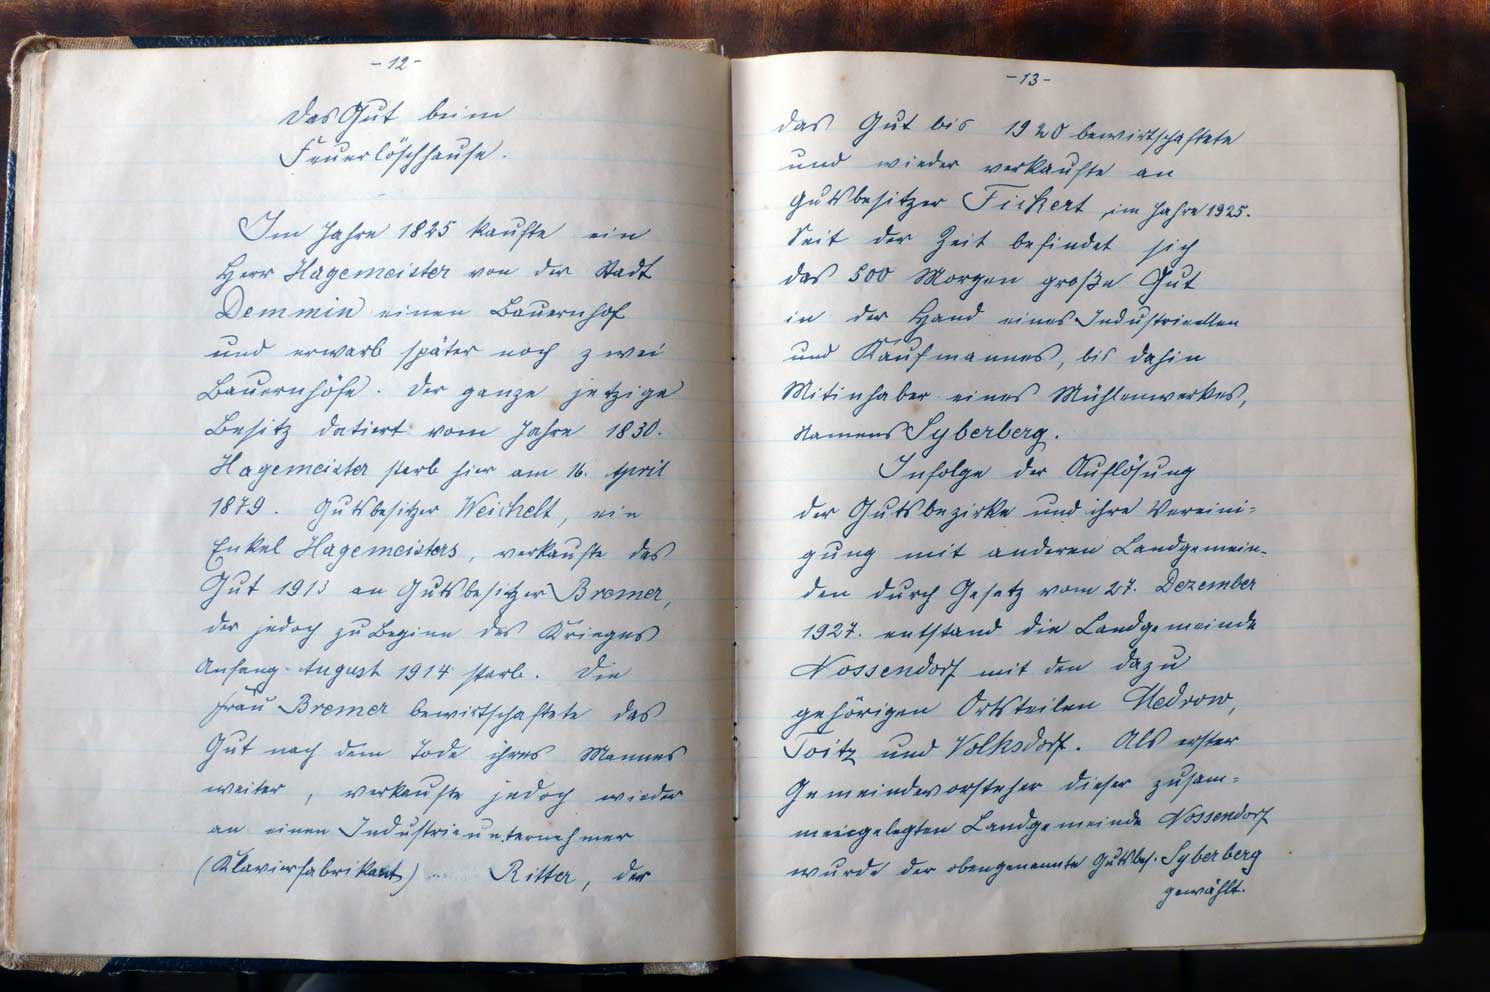 -12-
Das Gut beim
Feuerlöschhause.
Im Jahre 1825 kaufte ein
Herr Hagemeister von der Stadt
Demmin einen Bauernhof
und erwarb später noch zwei
Bauernhöfe. Der ganze jetzige
Besitz datiert vom Jahre 1830.
Hagemeister starb hier am 16. April
1879. Gutsbesitzer Weichelt, ein
Enkel Hagemeisters, verkaufte das
Gut 1913 an Gutsbesitzer Bremer,
der jedoch zu Beginn des Krieges
Anfang August 1914 starb. Die
Frau Bremer bewirtschaftete das
Gut nach dem Tode ihres Mannes
weiter, verkaufte jedoch wieder
an einen Industrieunternehmer
(Klavierfabrikant) Ritter, der
-13-
das Gut bis 1920 bewirtschaftete
und wieder verkaufte an
Gutsbesitzer Fickert im Jahre 1925.
Seit der Zeit befindet sich
das 500 Morgen große Gut
in der Hand eines Industriellen
und Kaufmannes, bis dahin
Mitinhaber eines Mühlenwerkes,
Namens Syberberg.
Infolge der Auflösung
der Gutsbezirke und ihre Vereini-
gung mit anderen Landgemein-
den durch Gesetz vom 27. Dezember
1927. entstand die Landgemeinde
Nossendorf mit den dazu
gehörigen Ortsteilen Medrow,
Toitz und Volksdorf. Als erster
Gemeindevorsteher dieser zusam-
mengelegten Landgemeinde Nossendorf
wurde der obengenannte Gutsbes. Syberberg
gewählt.